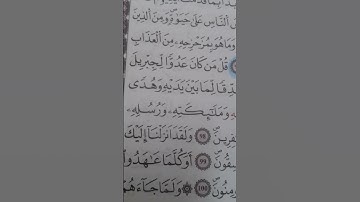 ٱلنَّاسِ عَلَىٰ حَيَوٰةٍ وَمِنَ ٱلَّذِينَ
وَمَا هُوَ بِمُزَحْزِحِهِۦ مِنَ ٱلْعَذَابِ
قُلْ مَن كَانَ عَدُوًّا لِّجِبْرِيلَ
دِّقًا لِّمَا بَيْنَ يَدَيْهِ وَهُدًى
هِۦ وَمَلَـٰٓئِكَتِهِۦ وَرُسُلِهِۦ
فِرِينَ ٩٨ وَلَقَدْ أَنزَلْنَآ إِلَيْكَ
سِقُونَ ٩٩ أَوَكُلَّمَا عَـٰهَدُوا۟
مِنُونَ ١٠٠ وَلَمَّا جَآءَهُمْ